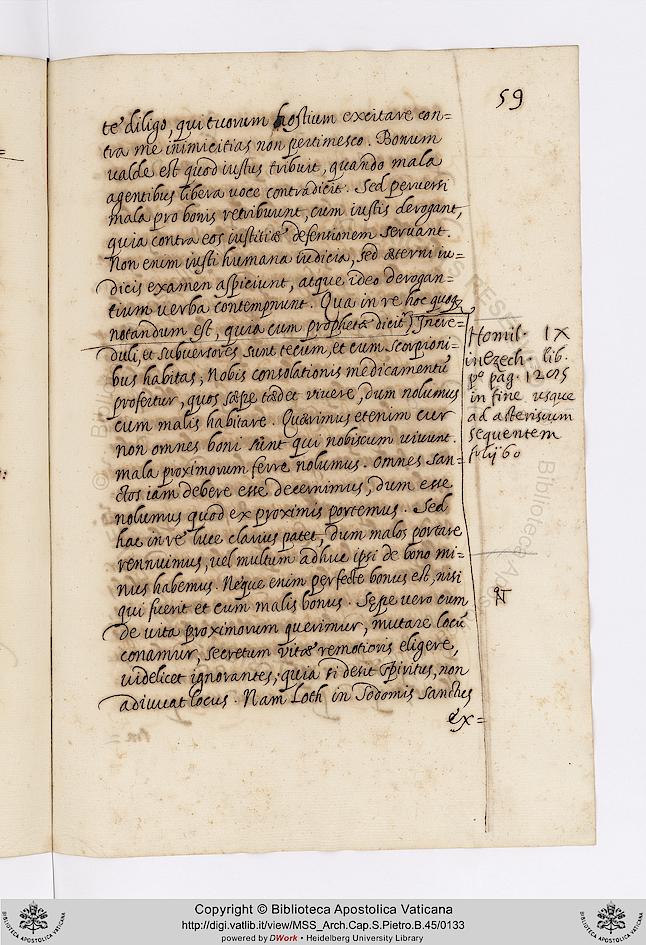 59
te diligo, qui tuorum hostium excitare con=
tra me inimicitias non pertimesco. Bonum
valde est quod iustus tribuit, quando mala
agentibus libera voce contradicit. Sed perversi
mala pro bonis retribuunt, cum iustis derogant,
quia contra eos iustitiæ defensionem servant.
Non enim iusti humana iudicia, sed æterni iu=
dicis examen aspiciunt, atque ideo derogan=
tium verba contemnunt. Qua in re hoc quoq
notandum est, quia cum propheta dicit, Incre=
duli, et subversores sunt tecum, et cum scorpioni=
bus habitas, Nobis consolationis medicamentū
profertur, quos sæpe tædet vivere, dum nolumus
cum malis habitare. Quærimus etenim cur
non omnes boni sint qui nobiscum vivunt.
mala proximorum ferre nolumus. Omnes san=
ctos iam debere esse decernimus, dum esse
nolumus quod ex proximis portemus. Sed
hac in re luce clarius patet, dum malos portare
rennuimus, vel multum adhuc ipsi de bono mi=
nus habemus. Neque enim perfecte bonus est, nisi
qui fuerit et cum malis bonus. Sepe vero cum
de vita proximorum querimur, mutare locū
conamur, secretum vitæ remotioris eligere,
videlicet ignorantes, quia si desit spiritus, non
adiuvat locus. Nam Loth in Sodomis sanctus
ex=
Homil. IX
in Ezech. lib.
po pag.
in fine usque
ad asteriscum
sequentem
60
© Biblioteca Apostolica Vaticana
Copyright © Biblioteca Apostolica Vaticana
http://digi.vatlib.it/view/MSS_Arch.Cap.S.Pietro.B.45/0133
powered by DWork • Heidelberg University Library